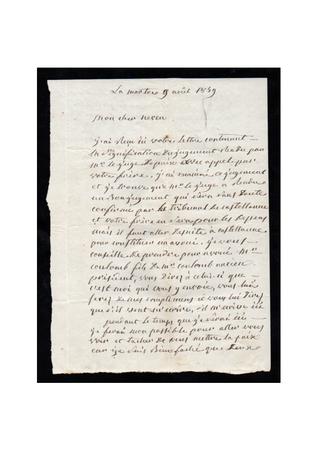 La martre 9 août 1859
mon cher neveu
j'ai reçu ici votre lettre contenant
la Signification du jugement rendu par
mr le juge de paix avec appel par
votre frère. j'ai examiné ce jugement
et je trouve que mr le juge a rendu
un bon jugement qui sera sans doute
confirmé par le tribunal de castellanne
et votre frère en sera pour les dépens
mais il faut aller de suite a castellanne
pour constituer un avoué. je vous
conseille de prendre pour avoué mr
coulomb fils de mr coulomb ancien
président, vous direz à celui ci que
c'est moi qui vous y envoie, vous lui
ferez de mes complimens et vous lui direz
que s'il veut m'écrire, il m'écrive ici
pendant le temps que je serai ici
je ferai mon possible pour aller vous
voir et tacher de vous mettre la paix
car je suis bien faché que deux